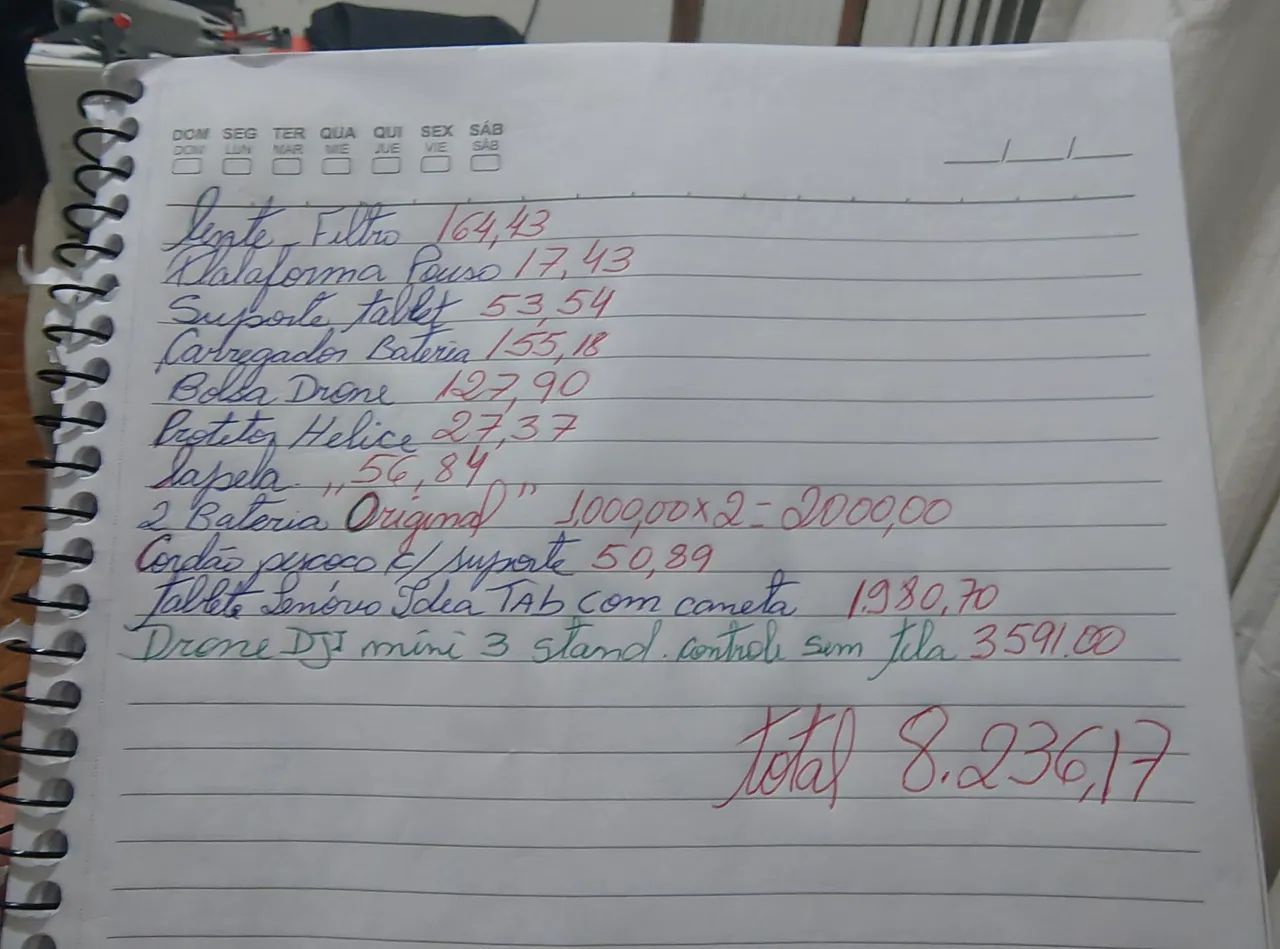 DOM SEG TER QUA QUI SEX SÁB
DOM LUN MAR MIE JUE VIE SÁB
__/__/__
Lente Filtro 164,43
Plataforma Pouso 17,43
Suporte tablet 53,54
Carregador Bateria 155,18
Bolsa Drone 127,90
Protetor Helice 27,37
lapela. ,, 56,84
2 Bateria Original " 1,000,00 x 2 = 2000,00
Cordão pescoco c/ suporte 50,89
Tablete Lenóvo Idea TAb com caneta 1.980,70
Drone DJI mini 3 stand. controle sem tela 3591.00
total 8.236,17